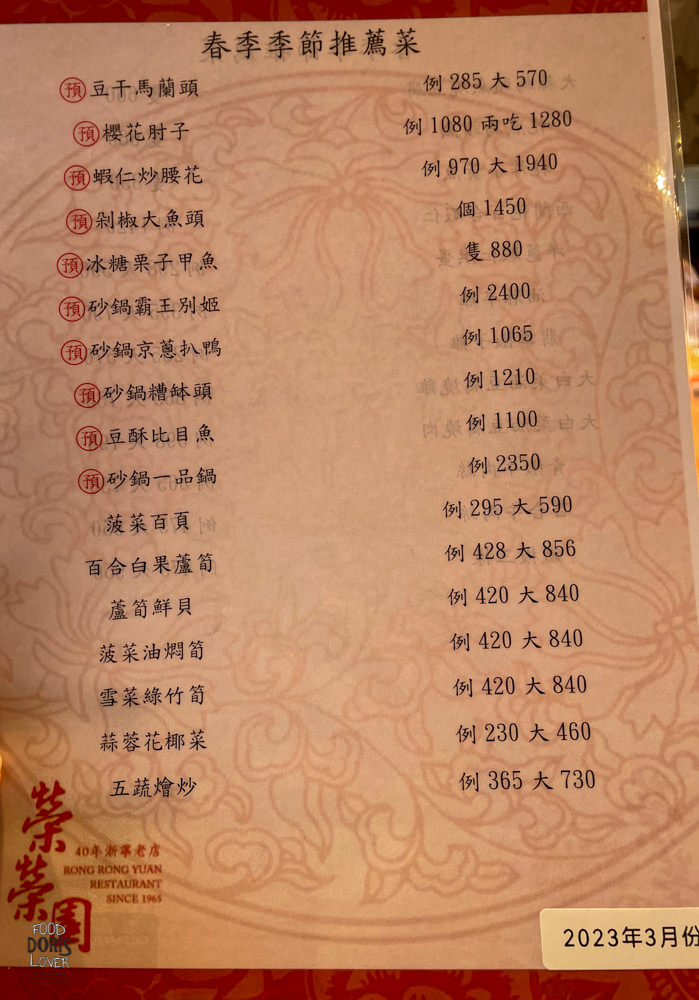 春季季節推薦菜
預 豆干馬蘭頭 例 285 大 570
預 櫻花肘子 例 1080 兩吃 1280
預 蝦仁炒腰花 例 970 大 1940
預 剁椒大魚頭 個 1450
預 冰糖栗子甲魚 隻 880
預 砂鍋霸王別姬 例 2400
預 砂鍋京蔥扒鴨 例 1065
預 砂鍋糟缽頭 例 1210
預 豆酥比目魚 例 1100
預 砂鍋一品鍋 例 2350
菠菜百頁 例 295 大 590
百合白果蘆筍 例 428 大 856
蘆筍鮮貝 例 420 大 840
菠菜油燜筍 例 420 大 840
雪菜綠竹筍 例 420 大 840
蒜蓉花椰菜 例 230 大 460
五蔬燴炒 例 365 大 730
榮榮園
40年浙寧老店
RONG RONG YUAN
RESTAURANT
SINCE 1965
FOOD
DORIS
LOVER
2023年3月份